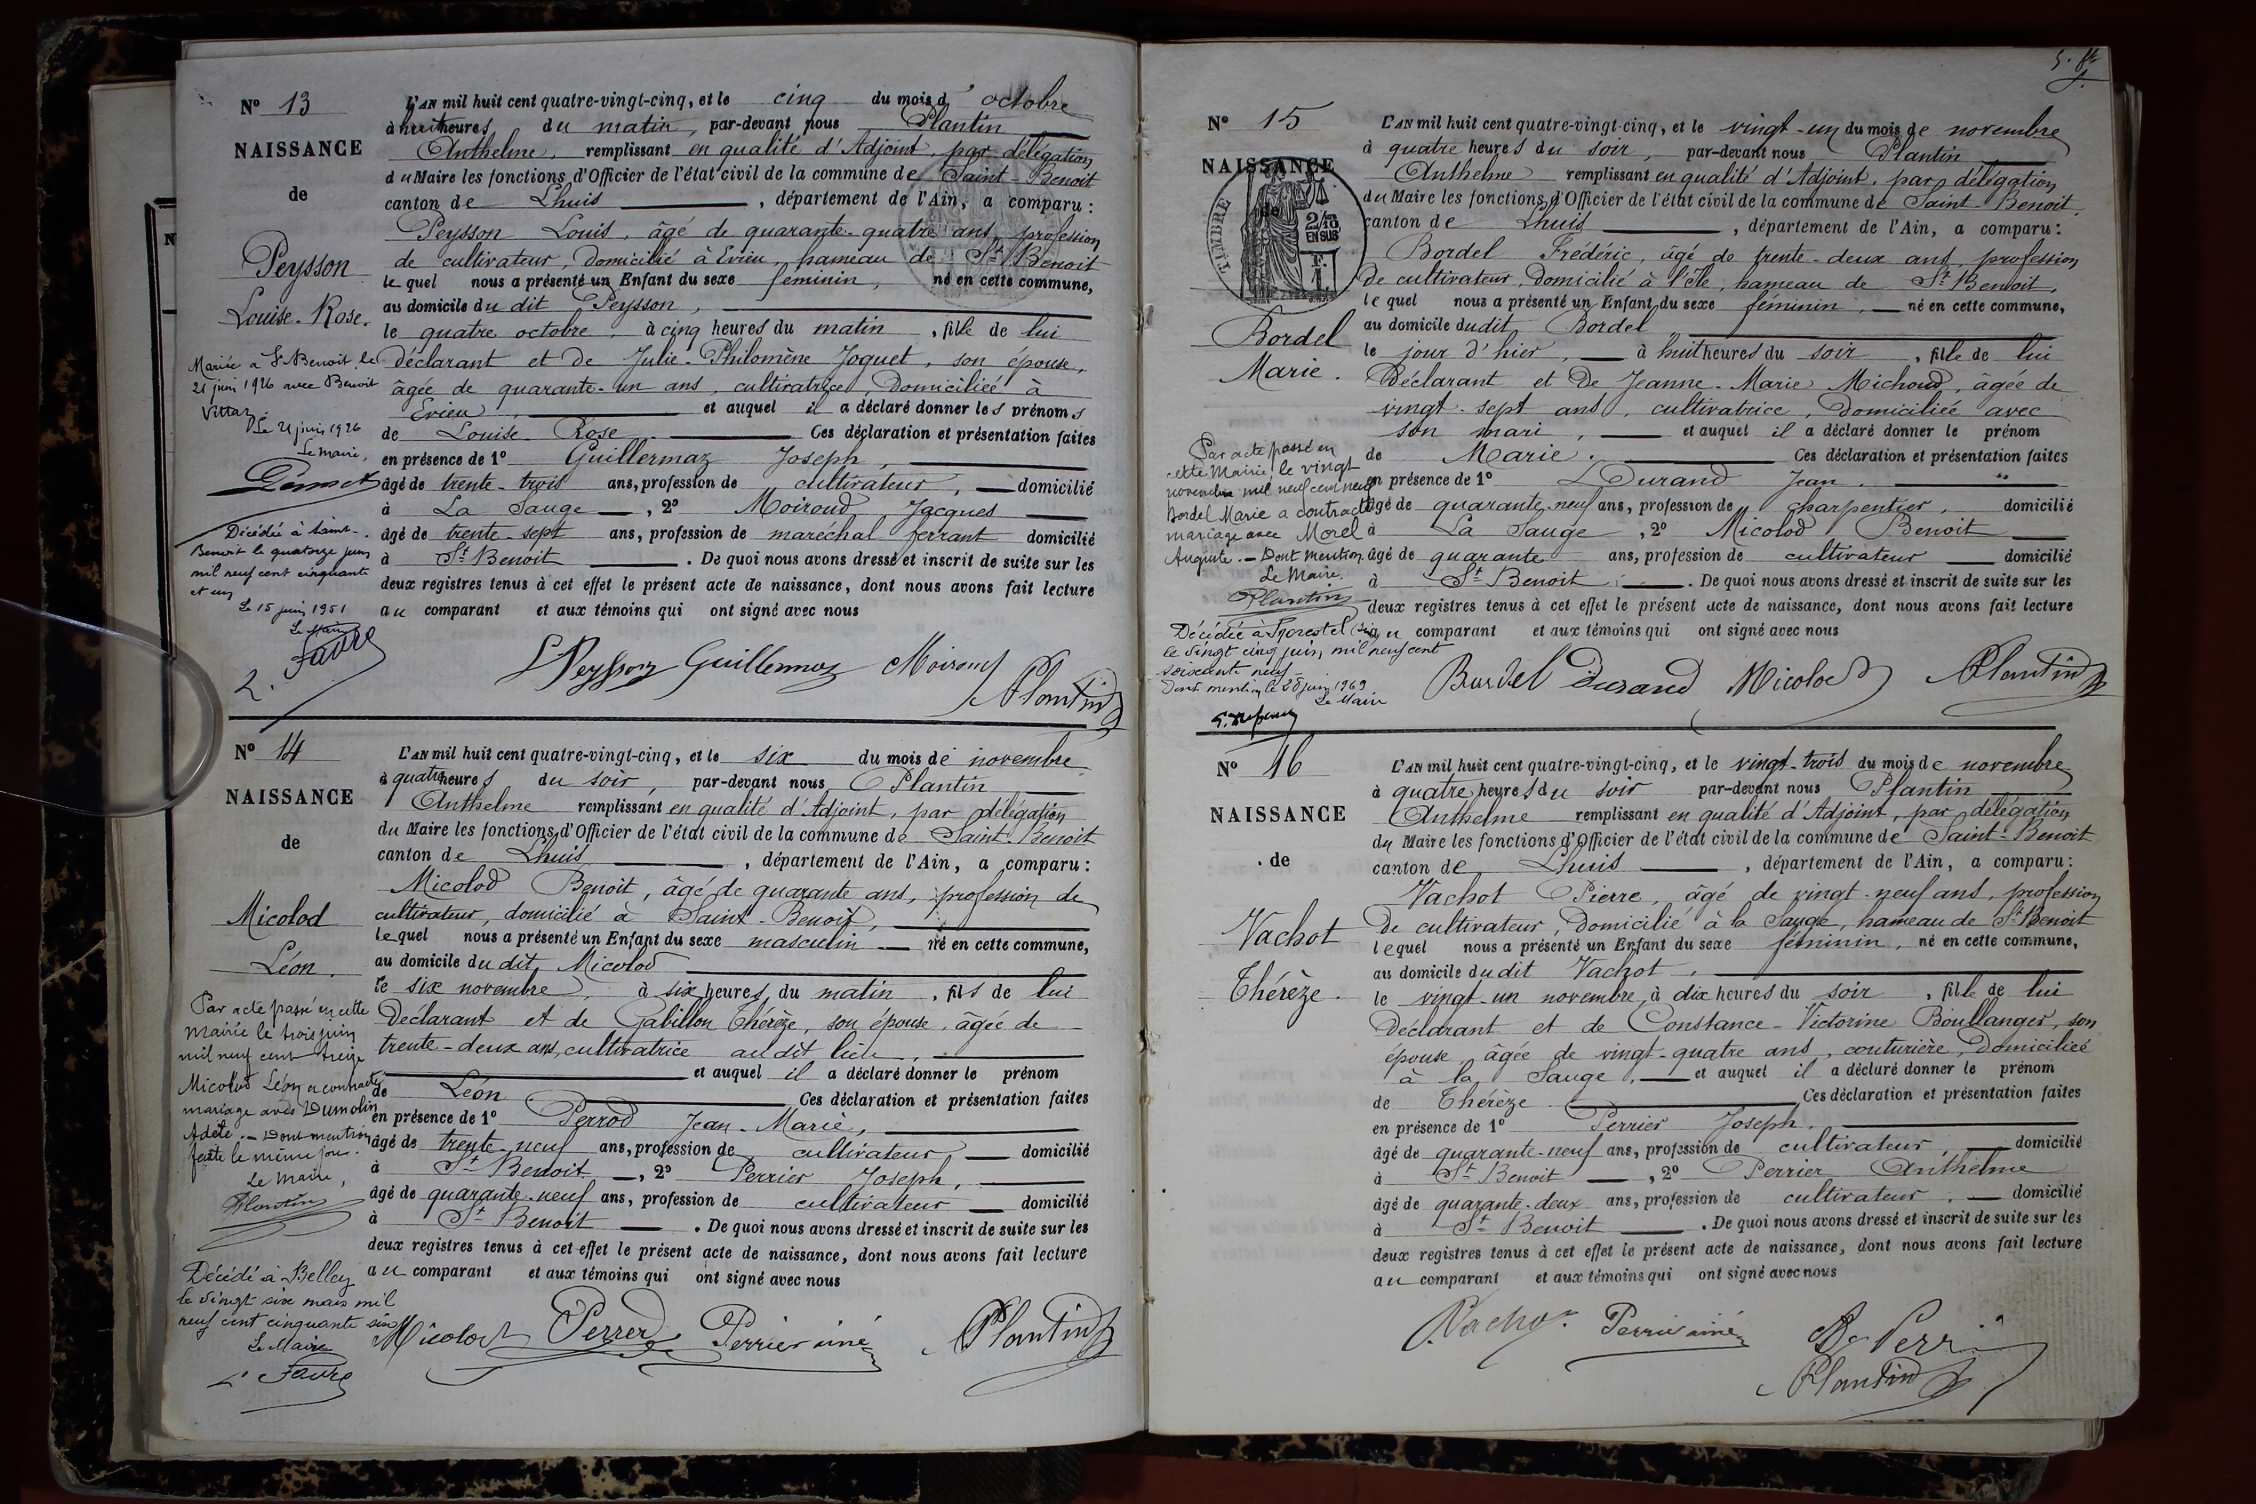 N° 13
NAISSANCE
de
Peysson
Louise-Rose.
Mariée à St Benoit le
21 juin 1926 avec Benoit
Vittaz.
Le 21 juin 1926
Le Maire,
Décédée à Saint-
Benoit le quatorze juin
mil neuf cent cinquante
et un
Le 15 juin 1951
Le Maire
L. Favre
L'AN mil huit cent quatre-vingt-cinq, et le cinq du mois d'octobre
à huit heures du matin, par-devant nous Plantin
Anthelme, remplissant en qualité d'Adjoint, par délégation
du Maire les fonctions d'Officier de l'état civil de la commune de Saint-Benoit
canton de Lhuis, département de l'Ain, a comparu :
Peysson Louis, âgé de quarante-quatre ans, profession
de cultivateur, domicilié à Evieu, hameau de St Benoit
lequel nous a présenté un Enfant du sexe féminin, né en cette commune,
au domicile du dit Peysson,
le quatre octobre, à cinq heures du matin, fille de lui
déclarant et de Julie-Philomène Joguet, son épouse,
âgée de quarante-un ans, cultivatrice, domiciliée à
Evieu, et auquel il a déclaré donner les prénoms
de Louise Rose Ces déclaration et présentation faites
en présence de 1° Guillermaz Joseph,
âgé de trente-trois ans, profession de cultivateur, domicilié
à La Sauge, 2° Moiroud Jacques
âgé de trente-sept ans, profession de maréchal ferrant domicilié
à St Benoit. De quoi nous avons dressé et inscrit de suite sur les
deux registres tenus à cet effet le présent acte de naissance, dont nous avons fait lecture
au comparant et aux témoins qui ont signé avec nous
L Peysson Guillermaz Moiroud
Plantin
N° 14
NAISSANCE
de
Micolod
Léon.
Par acte passé en cette
Mairie le trois juin
mil neuf cent treize
Micolod Léon a contracté
mariage avec Dumolin
Adèle. - Dont mention
faite le même jour.
Le Maire,
Plantin
Décédé à Belley
le vingt six mars mil
neuf cent cinquante six
Le Maire
L. Favre
L'AN mil huit cent quatre-vingt-cinq, et le six du mois de novembre
à quatre heures du soir, par-devant nous Plantin
Anthelme remplissant en qualité d'Adjoint, par délégation
du Maire les fonctions d'Officier de l'état civil de la commune de Saint-Benoit
canton de Lhuis, département de l'Ain, a comparu :
Micolod Benoit, âgé de quarante ans, profession de
cultivateur, domicilié à Saint-Benoit,
lequel nous a présenté un Enfant du sexe masculin né en cette commune,
au domicile du dit Micolod
le six novembre, à six heures du matin, fils de lui
Déclarant et de Gabillon Thérèze, son épouse, âgée de
trente-deux ans, cultivatrice au dit lieu,
et auquel il a déclaré donner le prénom
de Léon Ces déclaration et présentation faites
en présence de 1° Perrod Jean-Marie,
âgé de trente-neuf ans, profession de cultivateur domicilié
à St Benoit, 2° Perrier Joseph,
âgé de quarante-neuf ans, profession de cultivateur domicilié
à St Benoit. De quoi nous avons dressé et inscrit de suite sur les
deux registres tenus à cet effet le présent acte de naissance, dont nous avons fait lecture
au comparant et aux témoins qui ont signé avec nous
Micolod Perrod Perrier ainé Plantin
N° 15
NAISSANCE
de
TIMBRE
2/10
EN SUS
Bordel
Marie.
Par acte passé en
cette Mairie le vingt
novembre mil neuf cent neuf
Bordel Marie a contracté
mariage avec Morel
Auguste. - Dont mention
Le Maire.
Plantin
Décédée à
le vingt cinq juin mil neuf cent
soixante neuf -
Dont mention le 28 juin 1969
Le Maire
L'AN mil huit cent quatre-vingt-cinq, et le vingt-un du mois de novembre
à quatre heures du soir, par-devant nous Plantin
Anthelme remplissant en qualité d'Adjoint, par délégation
du Maire les fonctions d'Officier de l'état civil de la commune de Saint-Benoit
canton de Lhuis, département de l'Ain, a comparu :
Bordel Frédéric, âgé de trente-deux ans, profession
de cultivateur, domicilié à l'Ile, hameau de St Benoit,
lequel nous a présenté un Enfant du sexe féminin, né en cette commune,
au domicile dudit Bordel
le jour d'hier, à huit heures du soir, fille de lui
Déclarant et de Jeanne-Marie Michoud, âgée de
vingt-sept ans, cultivatrice, domiciliée avec
son mari, et auquel il a déclaré donner le prénom
de Marie. Ces déclaration et présentation faites
en présence de 1° Durand Jean.
âgé de quarante-neuf ans, profession de charpentier, domicilié
à La Sauge, 2° Micolod Benoit
âgé de quarante ans, profession de cultivateur domicilié
à St Benoit. De quoi nous avons dressé et inscrit de suite sur les
deux registres tenus à cet effet le présent acte de naissance, dont nous avons fait lecture
au comparant et aux témoins qui ont signé avec nous
Bordel Durand Micolod Plantin
N° 16
NAISSANCE
de
Vachot
Thérèze.
L'AN mil huit cent quatre-vingt-cinq, et le vingt-trois du mois de novembre
à quatre heures du soir par-devant nous Plantin
Anthelme remplissant en qualité d'Adjoint, par délégation
du Maire les fonctions d'Officier de l'état civil de la commune de Saint-Benoit
canton de Lhuis, département de l'Ain, a comparu :
Vachot Pierre, âgé de vingt-neuf ans, profession
de cultivateur, domicilié à la Sauge, hameau de St Benoit
lequel nous a présenté un Enfant du sexe féminin, né en cette commune,
au domicile du dit Vachot,
le vingt-un novembre, à dix heures du soir, fille de lui
Déclarant et de Constance-Victorine Boullanger, son
épouse, âgée de vingt-quatre ans, couturière, domiciliée
à la Sauge, et auquel il a déclaré donner le prénom
de Thérèze Ces déclaration et présentation faites
en présence de 1° Perrier Joseph.
âgé de quarante-neuf ans, profession de cultivateur, domicilié
à St Benoit, 2° Perrier Anthelme
âgé de quarante-deux ans, profession de cultivateur, domicilié
à St Benoit. De quoi nous avons dressé et inscrit de suite sur les
deux registres tenus à cet effet le présent acte de naissance, dont nous avons fait lecture
au comparant et aux témoins qui ont signé avec nous
Perrier ainé
Plantin